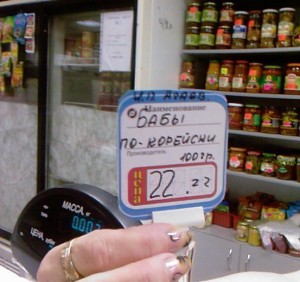 Наименование
БАБЫ
ПО-КОРЕЙСКИ
Производитель
100гр.
цена
22.22
МАССА, кг
0.002
ЦЕНА,